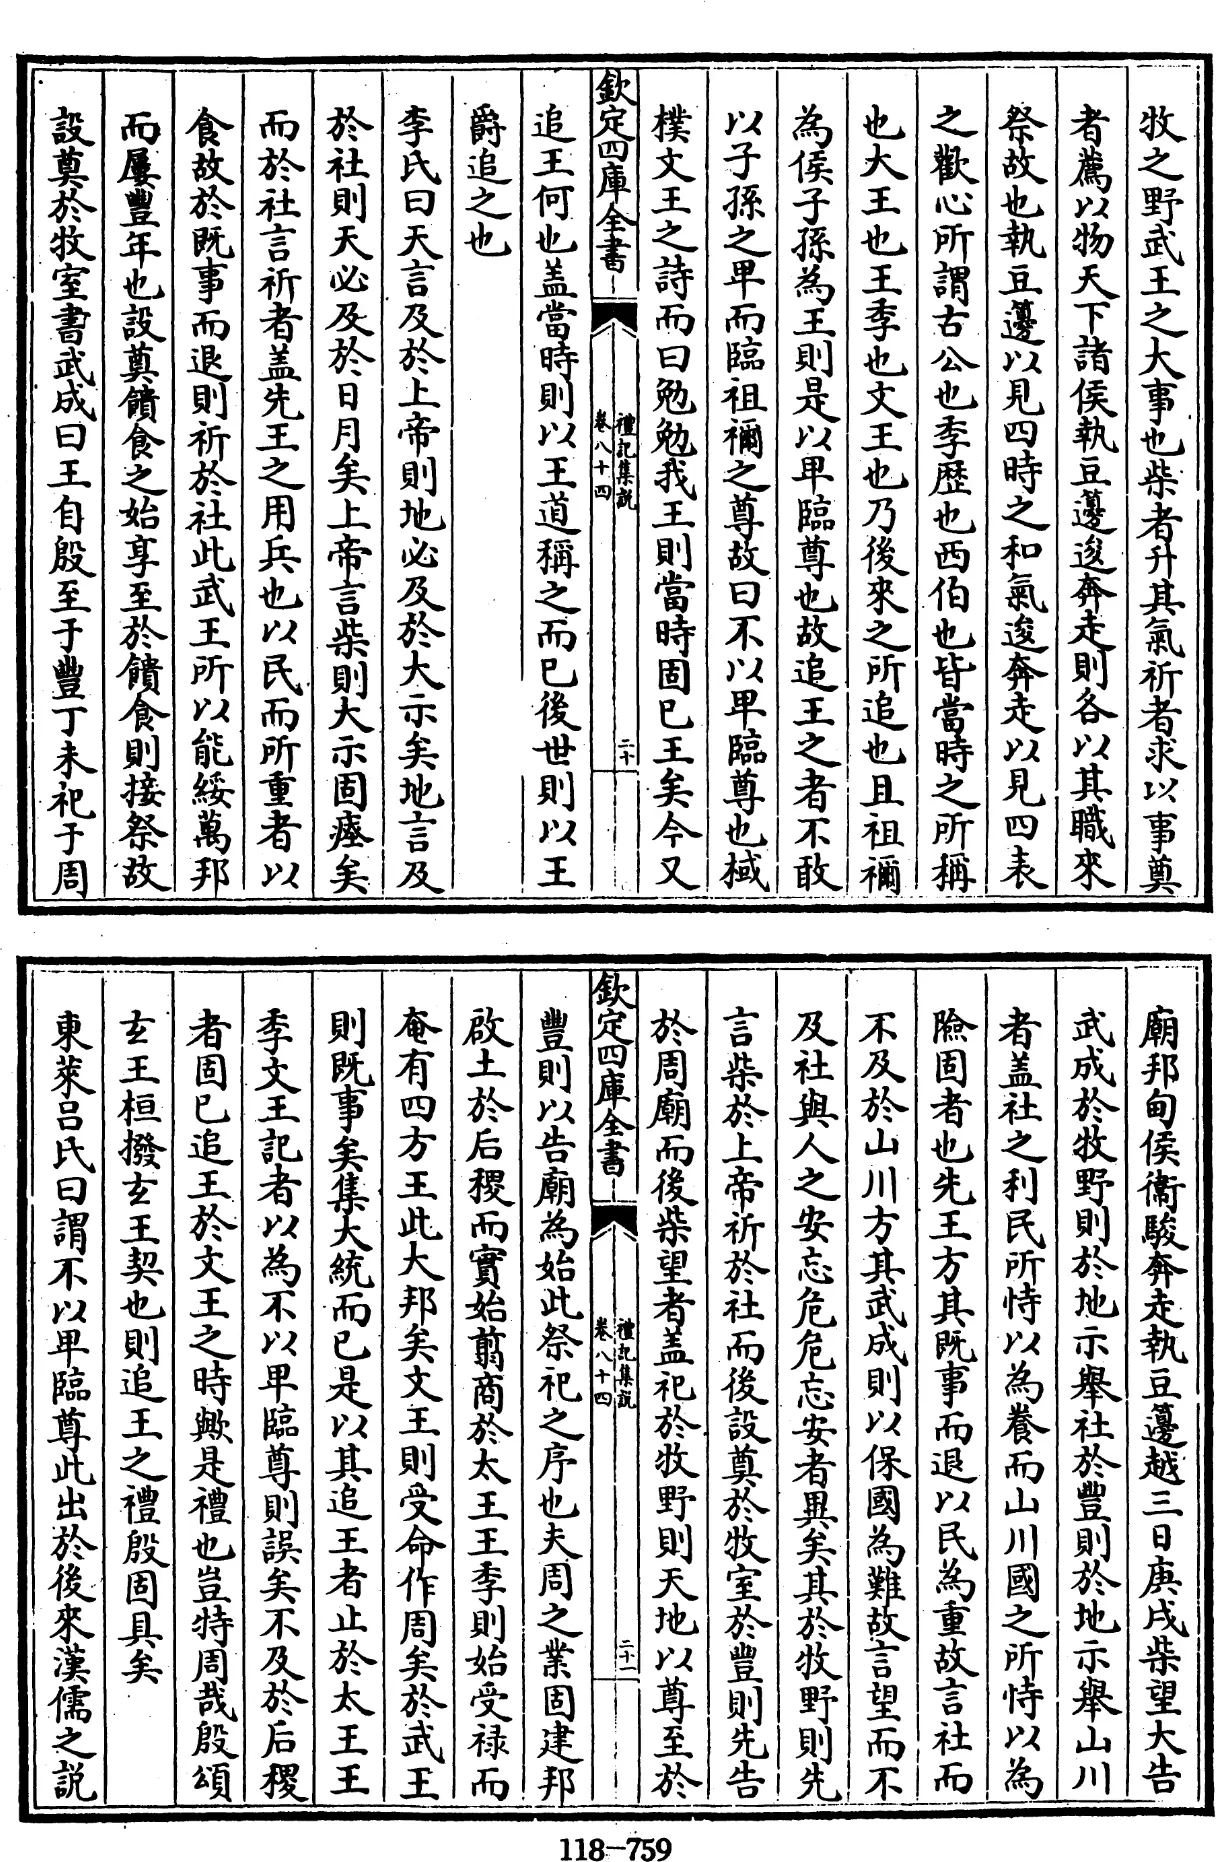 牧之野武王之大事也柴者升其氣祈者求以事奠
者薦以物天下諸侯執豆籩逡奔走則各以其職來
祭故也執豆籩以見四時之和氣逡奔走以見四表
之歡心所謂古公也季歷也西伯也皆當時之所稱
也大王也王季也文王也乃後來之所追也且祖禰
為侯子孫為王則是以卑臨尊也故追王之者不敢
以子孫之卑而臨祖禰之尊故曰不以卑臨尊也棫
樸文王之詩而曰勉勉我王則當時固已王矣今又
欽定四庫全書
禮記集說
卷八十四
二十
追王何也盖當時則以王道稱之而已後世則以王
爵追之也
李氏曰天言及於上帝則地必及於大示矣地言及
於社則天必及於日月矣上帝言柴則大示固瘞矣
而於社言祈者盖先王之用兵也以民而所重者以
食故於既事而退則祈於社此武王所以能綏萬邦
而屢豐年也設奠饋食之始享至於饋食則接祭故
設奠於牧室書武成曰王自殷至于豐丁未祀于周
廟邦甸侯衛駿奔走執豆籩越三日庚戌柴望大告
武成於牧野則於地示舉社於豐則於地示舉山川
者盖社之利民所恃以為養而山川國之所恃以為
險固者也先王方其既事而退以民為重故言社而
不及於山川方其武成則以保國為難故言望而不
及社與人之安忘危危忘安者異矣其於牧野則先
言柴於上帝祈於社而後設奠於牧室於豐則先告
於周廟而後柴望者盖祀於牧野則天地以尊至於
欽定四庫全書
禮記集說
卷八十四
二十一
豐則以告廟為始此祭祀之序也夫周之業固建邦
啟土於后稷而實始翦商於太王王季則始受禄而
奄有四方王此大邦矣文王則受命作周矣於武王
則既事矣集大統而已是以其追王者止於太王王
季文王記者以為不以卑臨尊則誤矣不及於后稷
者固已追王於文王之時歟是禮也豈特周哉殷頌
玄王桓撥玄王契也則追王之禮殷固具矣
東萊吕氏曰謂不以卑臨尊此出於後來漢儒之説
118-759